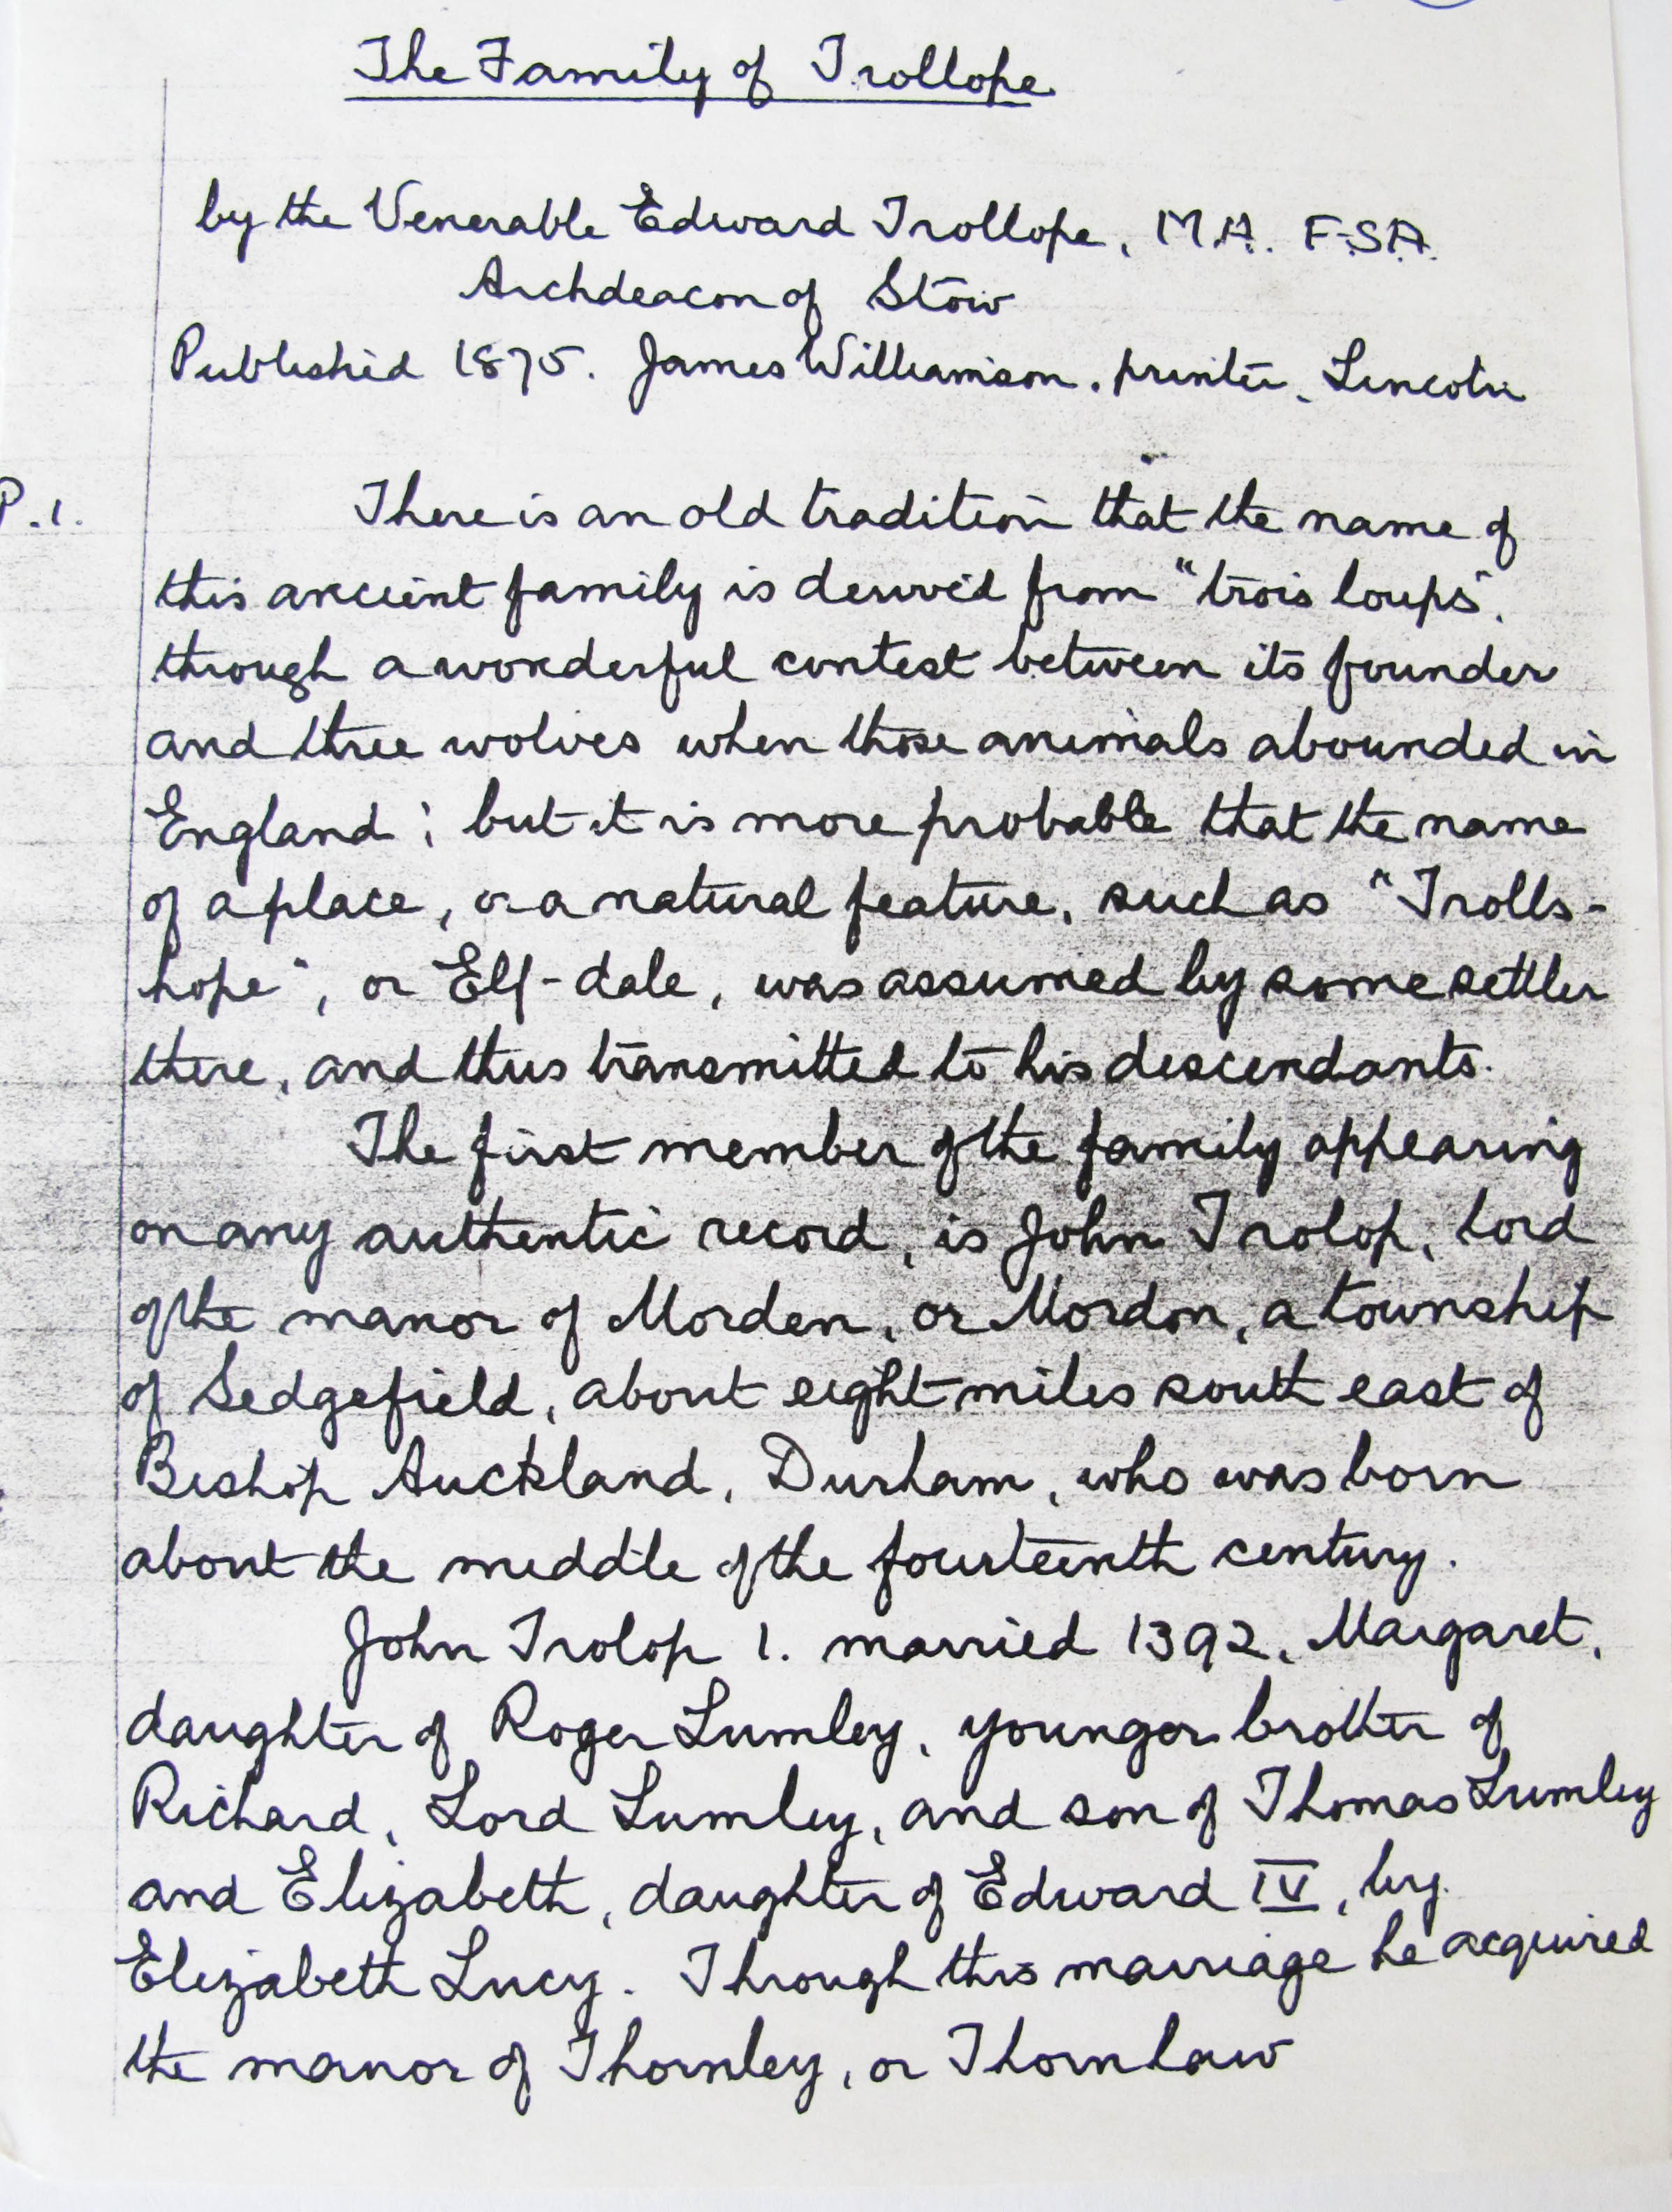 The Family of Trollope
by the Venerable Edward Trollope, M.A. F.S.A.
Archdeacon of Stow
Published 1875. James Williamson, printer, Lincoln
P.1. There is an old tradition that the name of
this ancient family is derived from "trois loups",
through a wonderful contest between its founder
and three wolves when those animals abounded in
England; but it is more probable that the name
of a place, or a natural feature, such as "Trolls-
hope", or Elf-dale, was assumed by some settler
there, and thus transmitted to his descendants.
The first member of the family appearing
on any authentic record, is John Trolop, lord
of the manor of Morden, or Mordon, a township
of Sedgefield, about eight miles south east of
Bishop Auckland, Durham, who was born
about the middle of the fourteenth century.
John Trolop 1. married 1392, Margaret,
daughter of Roger Lumley, younger brother of
Richard, Lord Lumley, and son of Thomas Lumley
and Elizabeth, daughter of Edward IV, by
Elizabeth Lucy. Through this marriage he acquired
the manor of Thornley, or Thornlaw